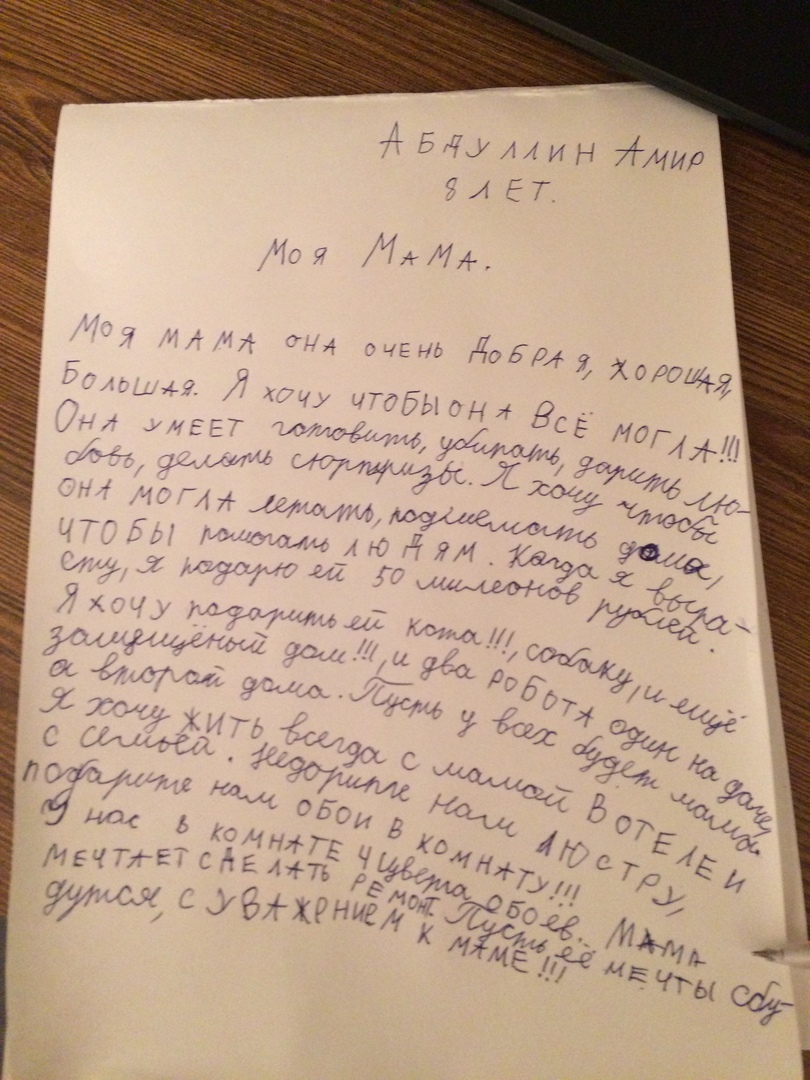 АБДУЛЛИН АМИР
8 ЛЕТ.
МОЯ МАМА.
МОЯ МАМА ОНА ОЧЕНЬ ДОБРАЯ, ХОРОШАЯ,
БОЛЬШАЯ. Я ХОЧУ ЧТОБЫ ОНА ВСЁ МОГЛА!!!
ОНА УМЕЕТ готовить, убирать, дарить лю-
бовь, делать сюрпризы. Я хочу чтобы
ОНА МОГЛА летать, поднимать дома,
ЧТОБЫ помогать ЛЮДЯМ. Когда я выра-
сту, я подарю ей 50 милеонов рублей.
Я ХОЧУ подарить ей кота!!!, собаку, и ещё
защищёный дом!!!, и два РОБОТА один на дачу,
а второй дома. Пусть у всех будет мама.
Я хочу ЖИТЬ всегда с мамой В ОТЕЛЕ И
С СЕМЬЁЙ. нам ЛЮСТРУ,
подарите нам ОБОИ В КОМНАТУ!!!
У нас в КОМНАТЕ 4 цвета ОБОЕВ.. МАМА
МЕЧТАЕТ СДЕЛАТЬ РЕМОНТ. Пусть её МЕЧТЫ сбу-
дутся, С УВАЖЕНИЕМ К МАМЕ!!!